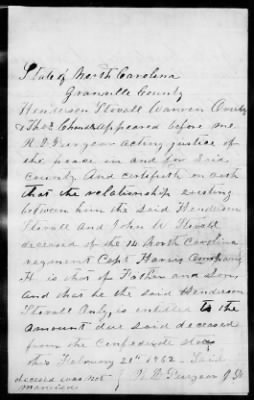 State of North Carolina
Granville County
Henderson Stovall Warren Overby
& Thos. appeared before me
acting justice of
the peace in and for said
County And certifieth on oath
that the relationship existing
between him the said Henderson
Stovall And John W Stovall
deceased of the 14 North Carolina
regiment Capt Harris Company
H is that of Father and Son
And that he the said Henderson
Stovall Only, is entitled to the
amount due said deceased
from the Confederate
this February 21st 1862 - Said
deceased was not
married